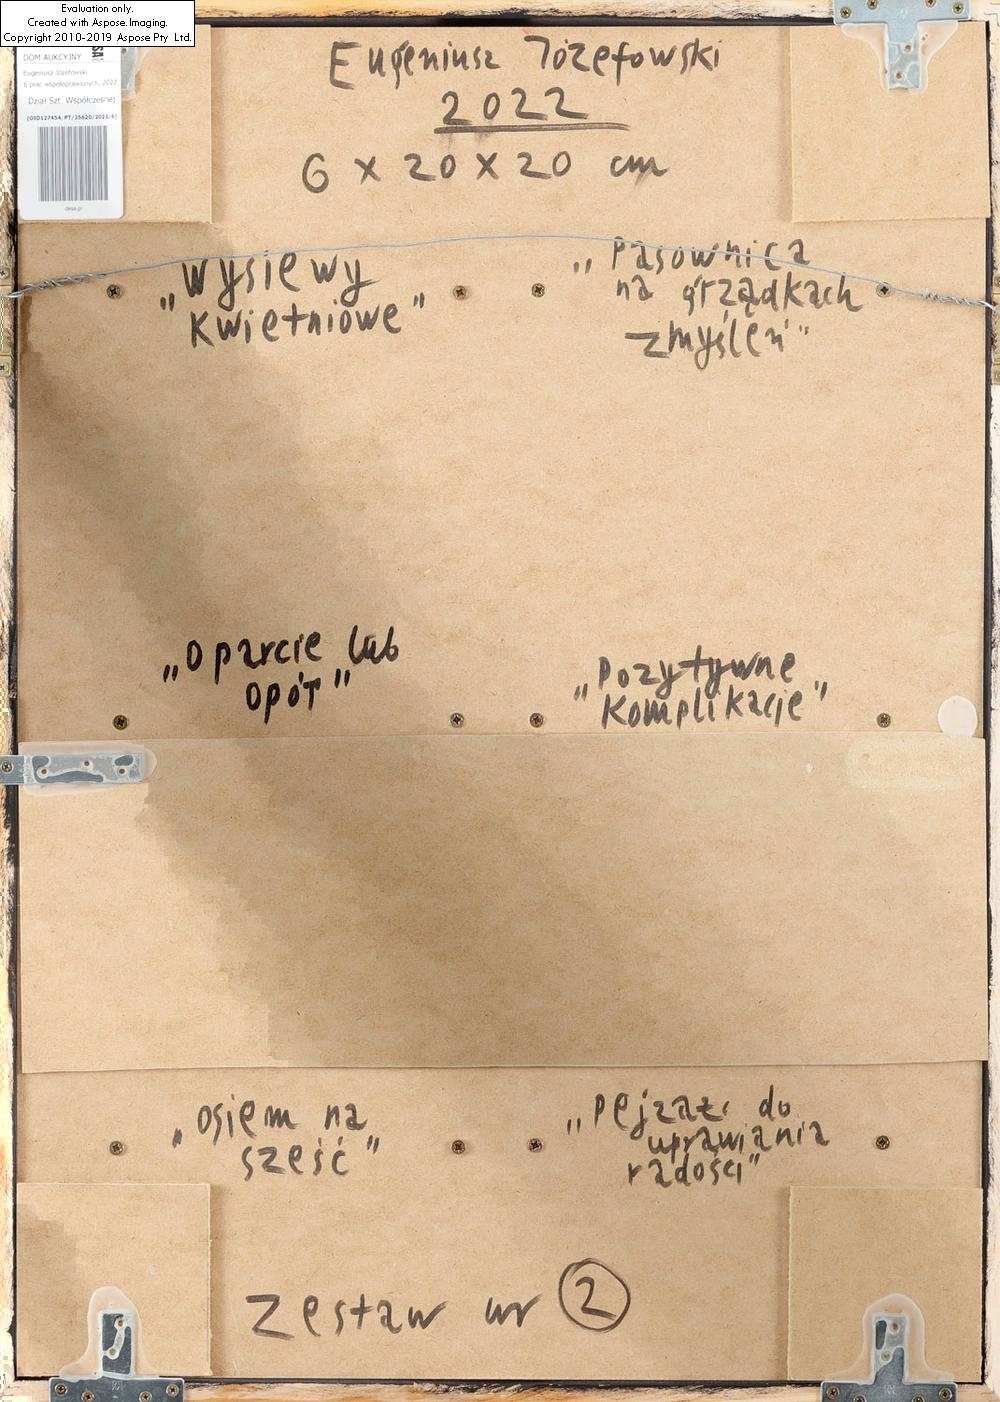 Evaluation only.
Created with Aspose.Imaging.
Copyright 2010-2019 Aspose Pty Ltd.
DESA
DOM AUKCYJNY
Eugeniusz Józefowski
6 prac współoprawionych, 2022
Dział Szt. Współczesnej
(00D127454, PT/25620/2022/4)
desa.pl
Eugeniusz Józefowski
2022
6 x 20 x 20 cm
„Wysiewy
Kwietniowe"
„Pasownica
na grządkach
zmyśleń"
„Oparcie lub
Opór"
„Pozytywne
Komplikacje"
„Osiem na
sześć"
„Pejzaż do
uprawiania
radości"
Zestaw nr 2